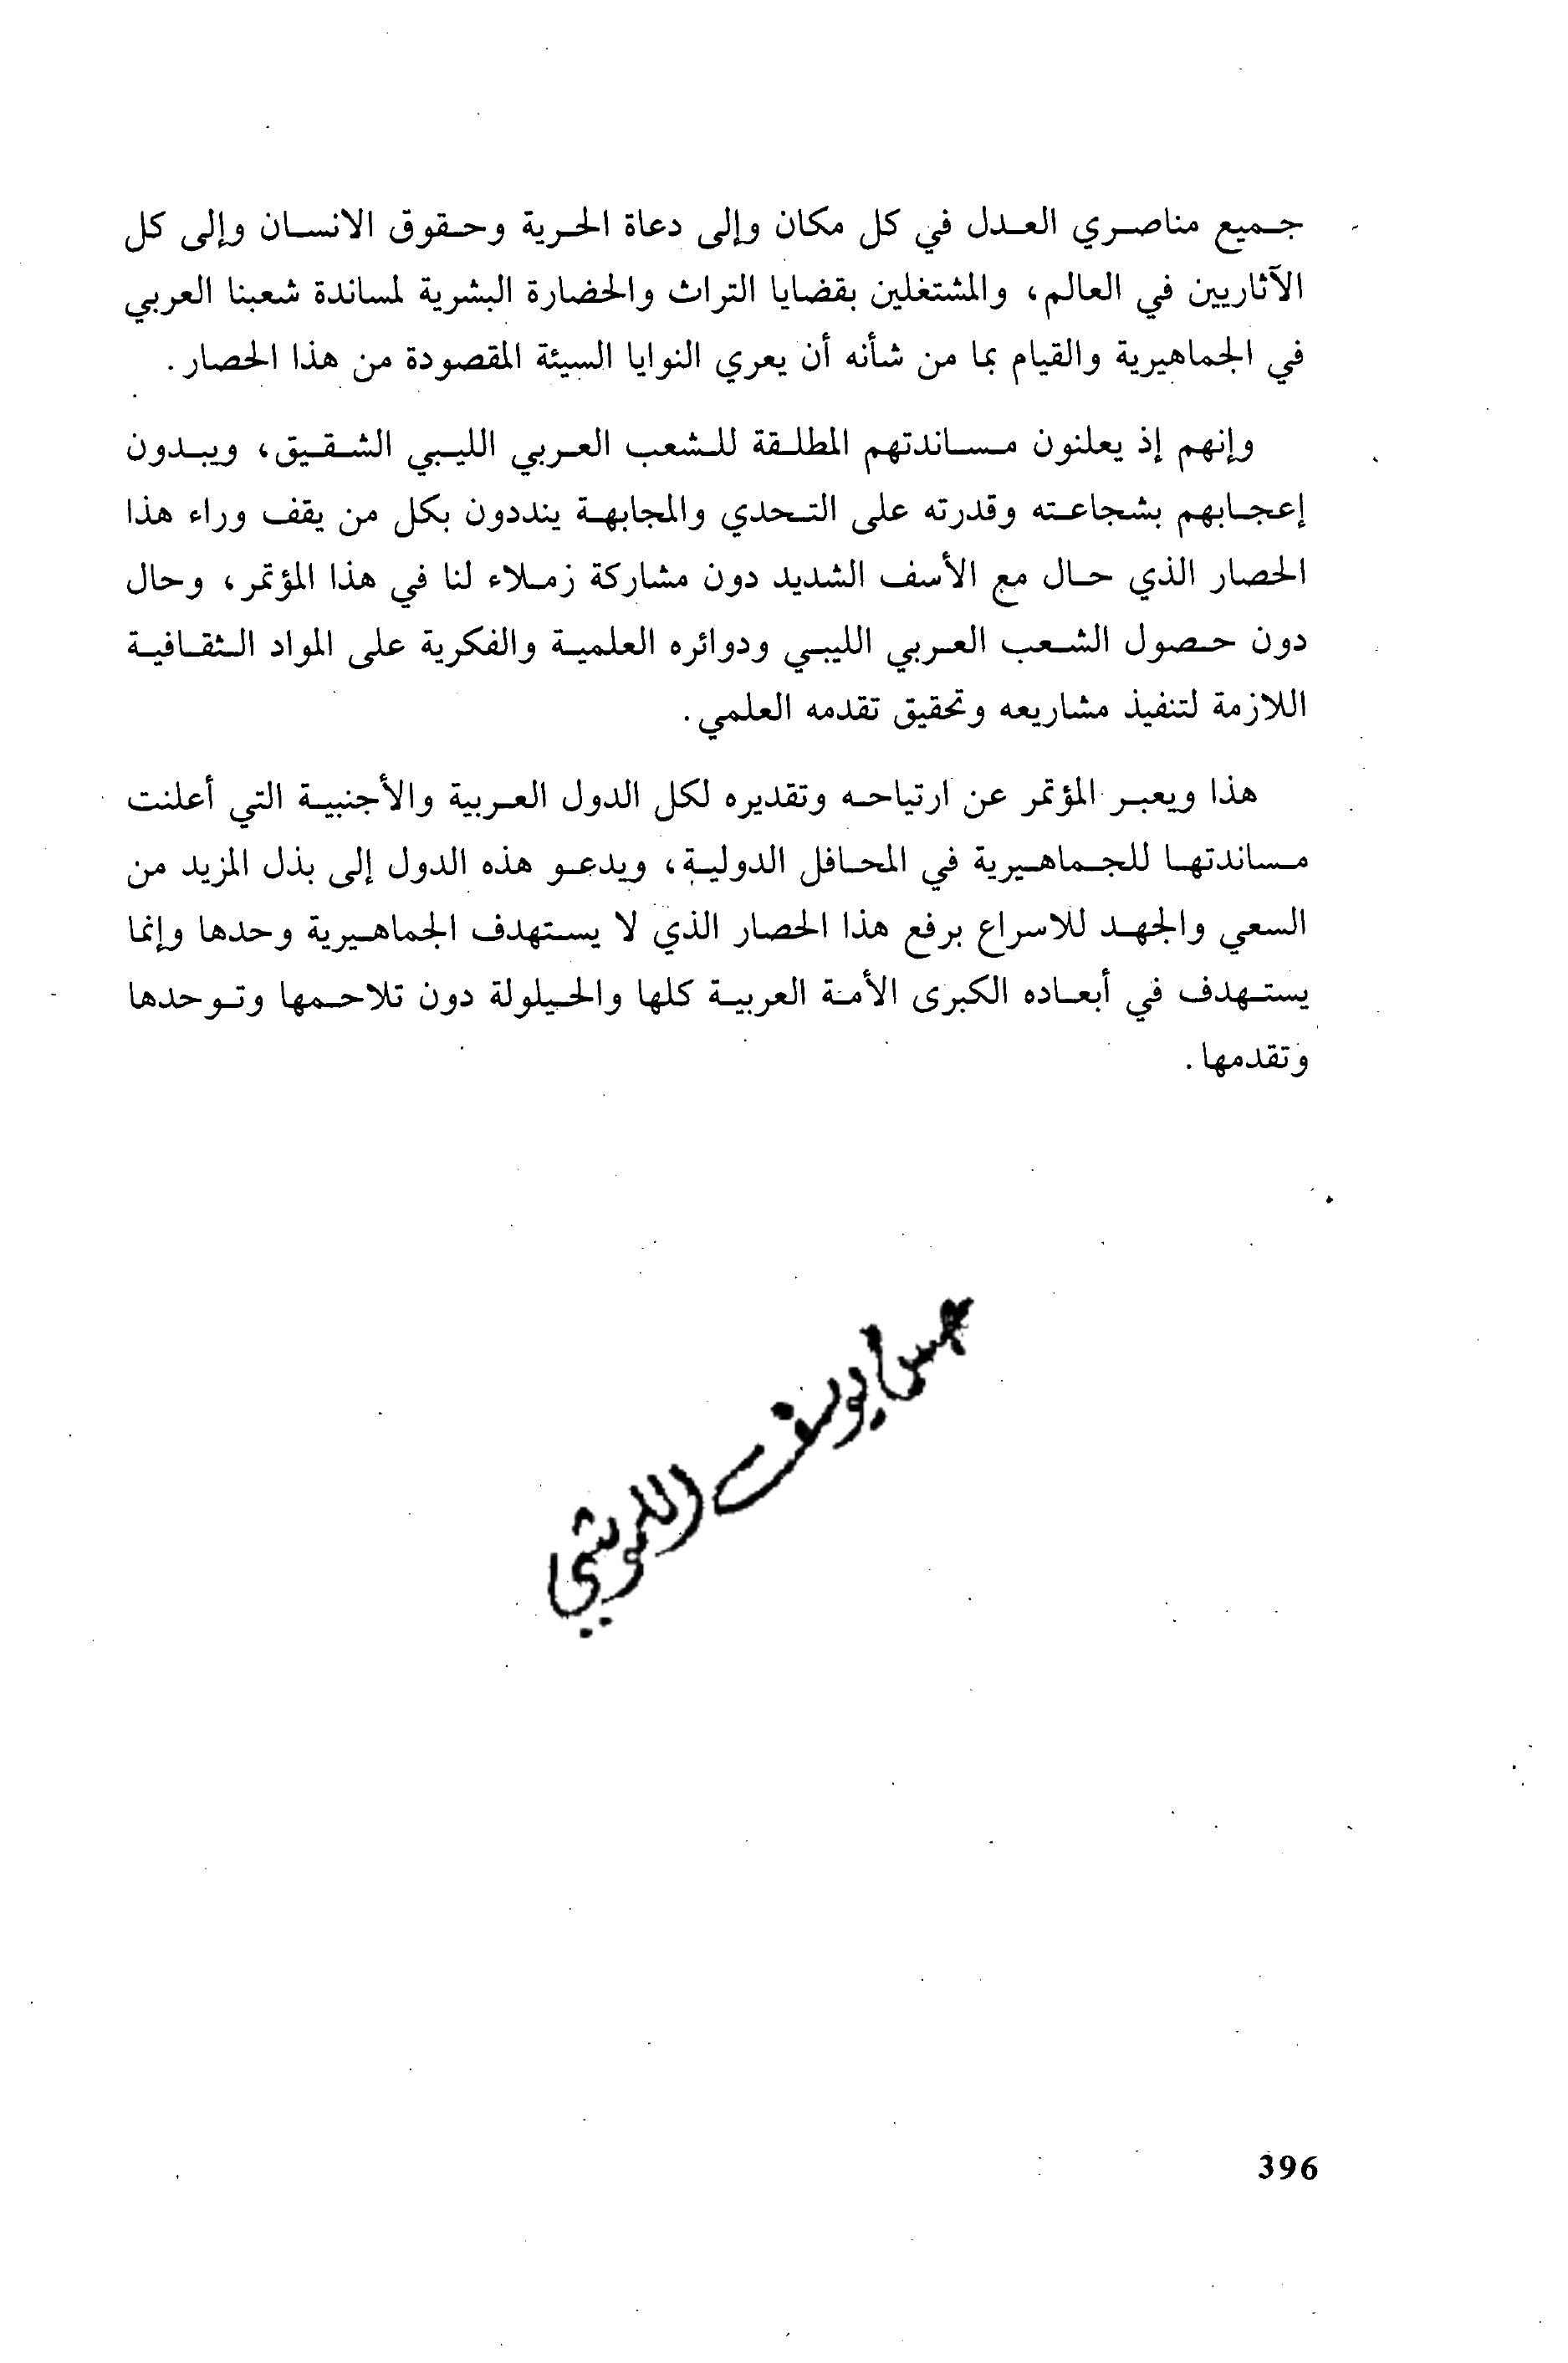 جميع مناصري العدل في كل مكان وإلى دعاة الحرية وحقوق الانسان وإلى كل
الآثاريين في العالم، والمشتغلين بقضايا التراث والحضارة البشرية لمساندة شعبنا العربي
في الجماهيرية والقيام بما من شأنه أن يعري النوايا السيئة المقصودة من هذا الحصار.
وإنهم إذ يعلنون مساندتهم المطلقة للشعب العربي الليبي الشقيق، ويبدون
إعجابهم بشجاعته وقدرته على التحدي والمجابهة ينددون بكل من يقف وراء هذا
الحصار الذي حال مع الأسف الشديد دون مشاركة زملاء لنا في هذا المؤتمر، وحال
دون حصول الشعب العربي الليبي ودوائره العلمية والفكرية على المواد الثقافية
اللازمة لتنفيذ مشاريعه وتحقيق تقدمه العلمي.
هذا ويعبر المؤتمر عن ارتياحه وتقديره لكل الدول العربية والأجنبية التي أعلنت
مساندتها للجماهيرية في المحافل الدولية، ويدعو هذه الدول إلى بذل المزيد من
السعي والجهد للاسراع برفع هذا الحصار الذي لا يستهدف الجماهيرية وحدها وإنما
يستهدف في أبعاده الكبرى الأمة العربية كلها والحيلولة دون تلاحمها وتوحدها
وتقدمها.
يوسف
396